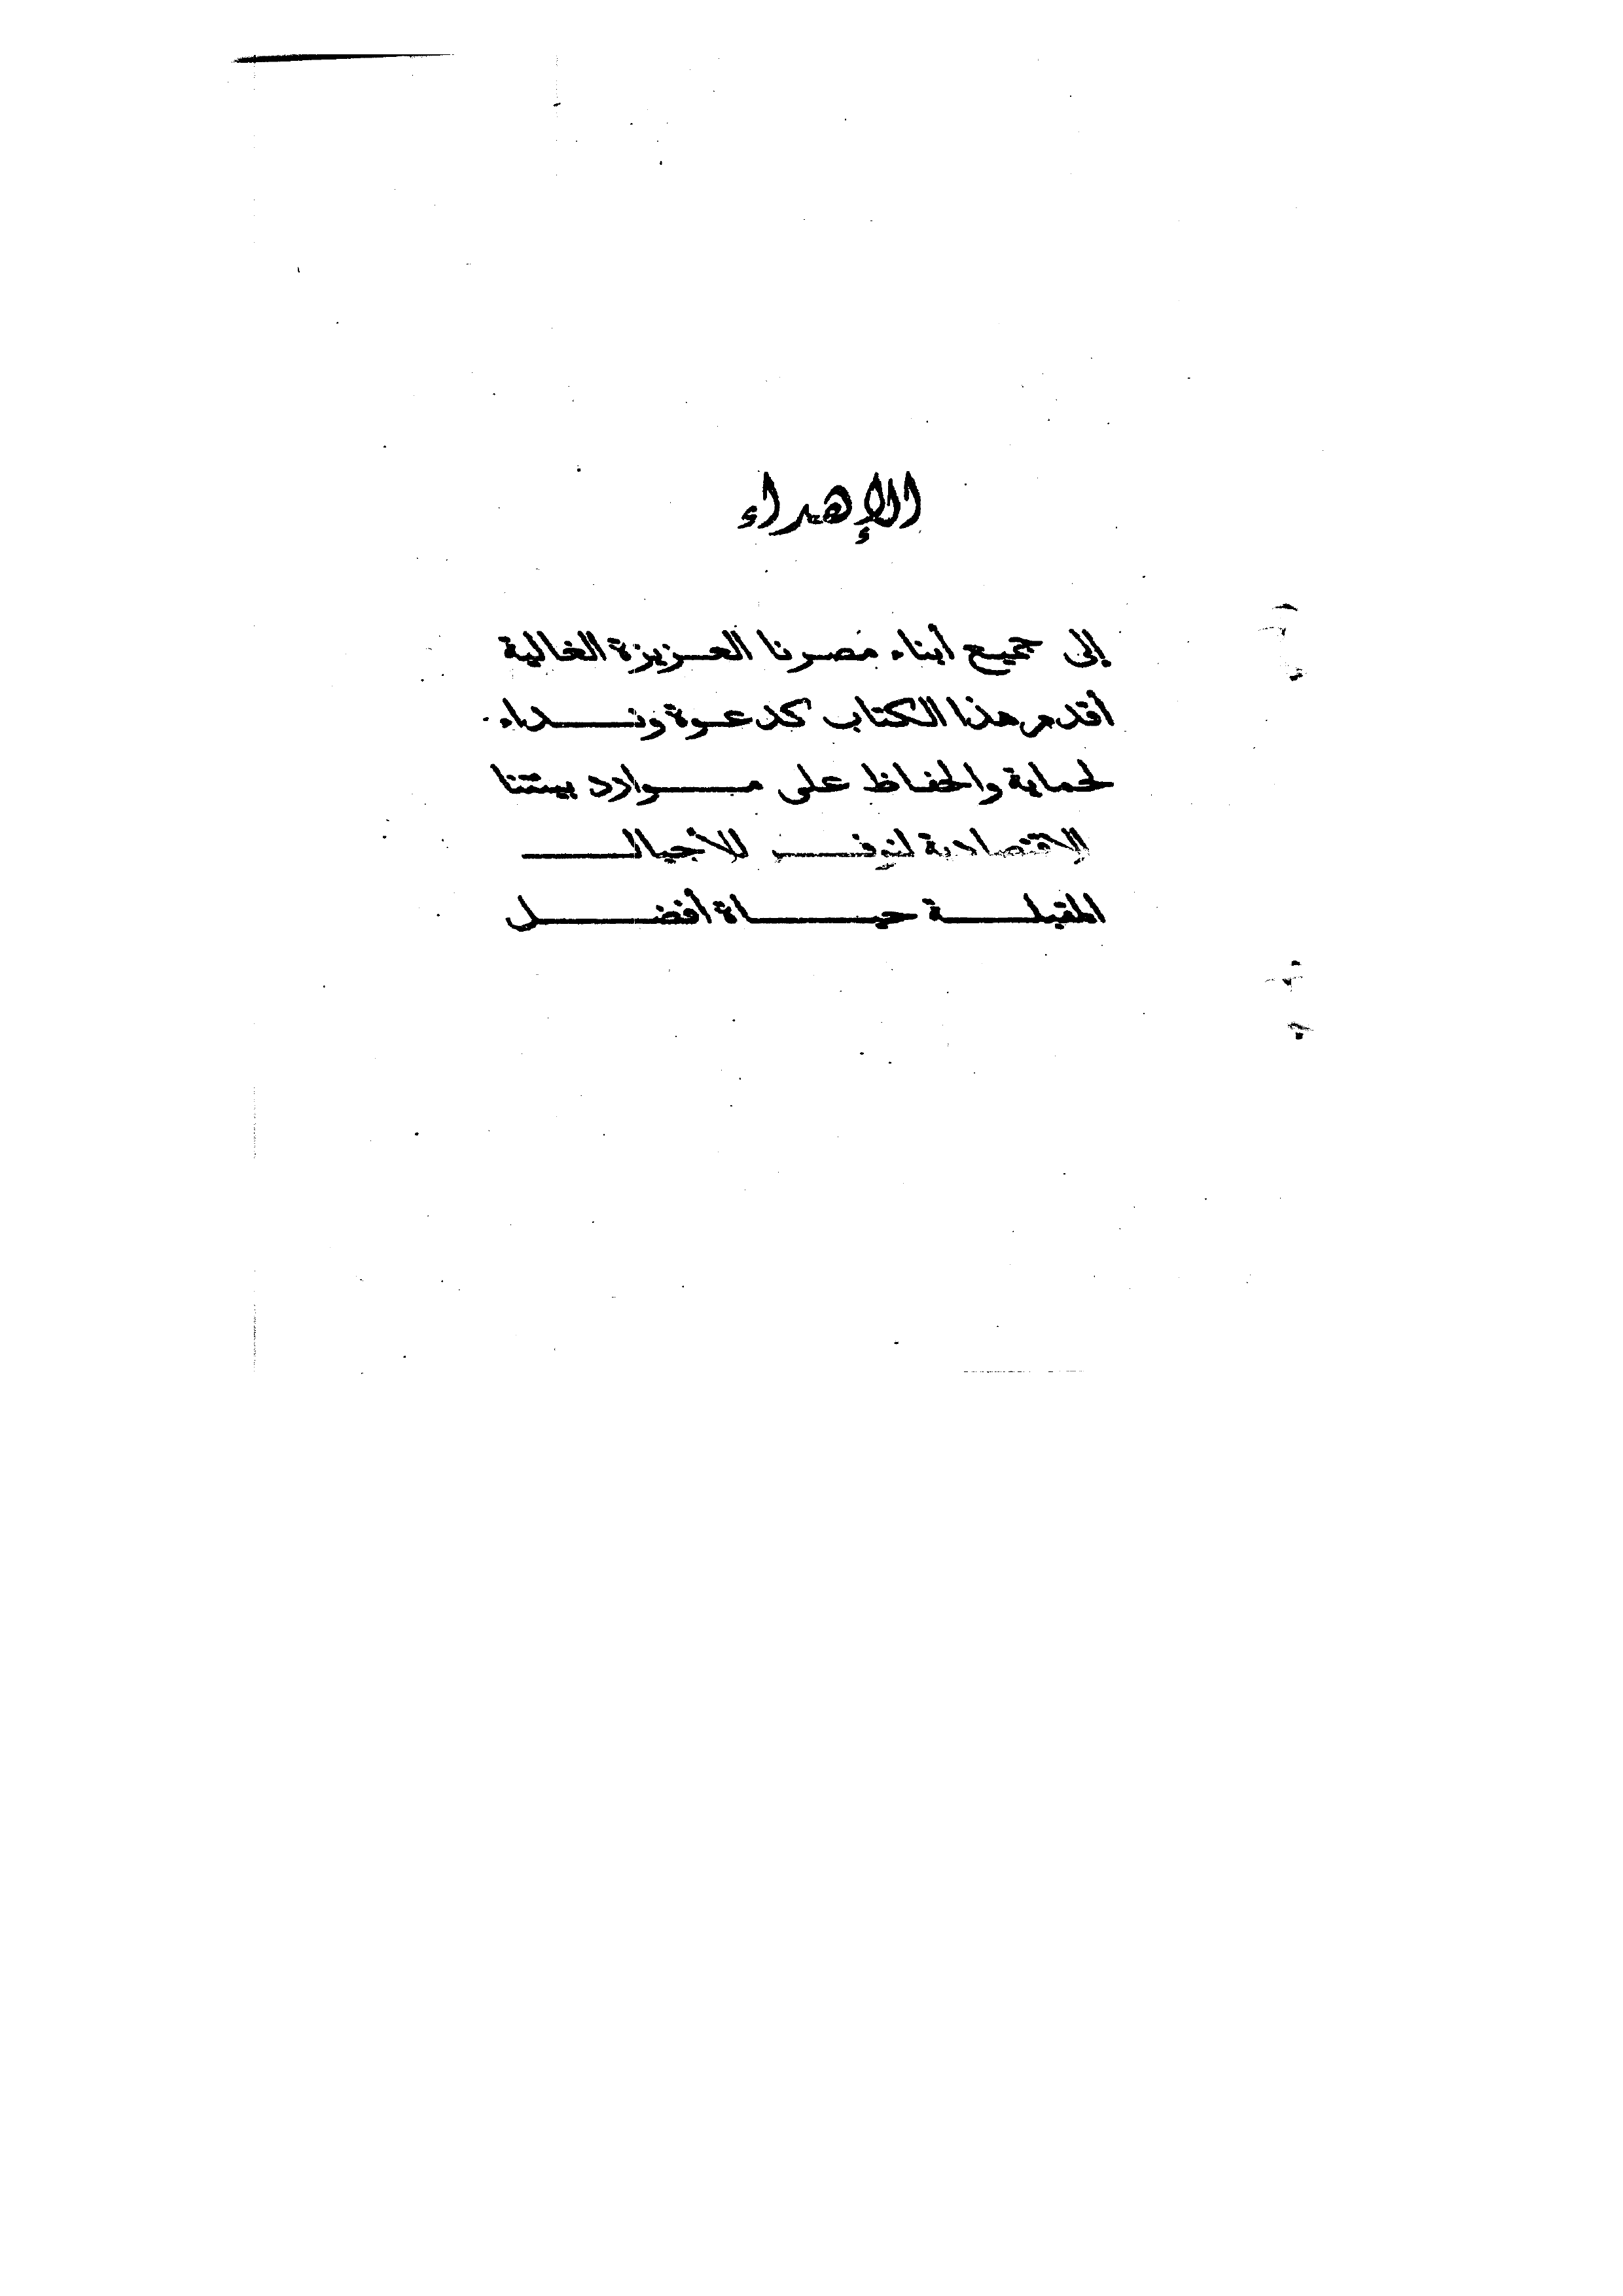 الإهداء
إلى جميع أبناء مصرنا العزيزة الغالية
أقدم هذا الكتاب كدعوة ونداء
لحماية والحفاظ على موارد بيئتنا
الاقتصادية لنوفر للأجيال
المقبلة حياة أفضل